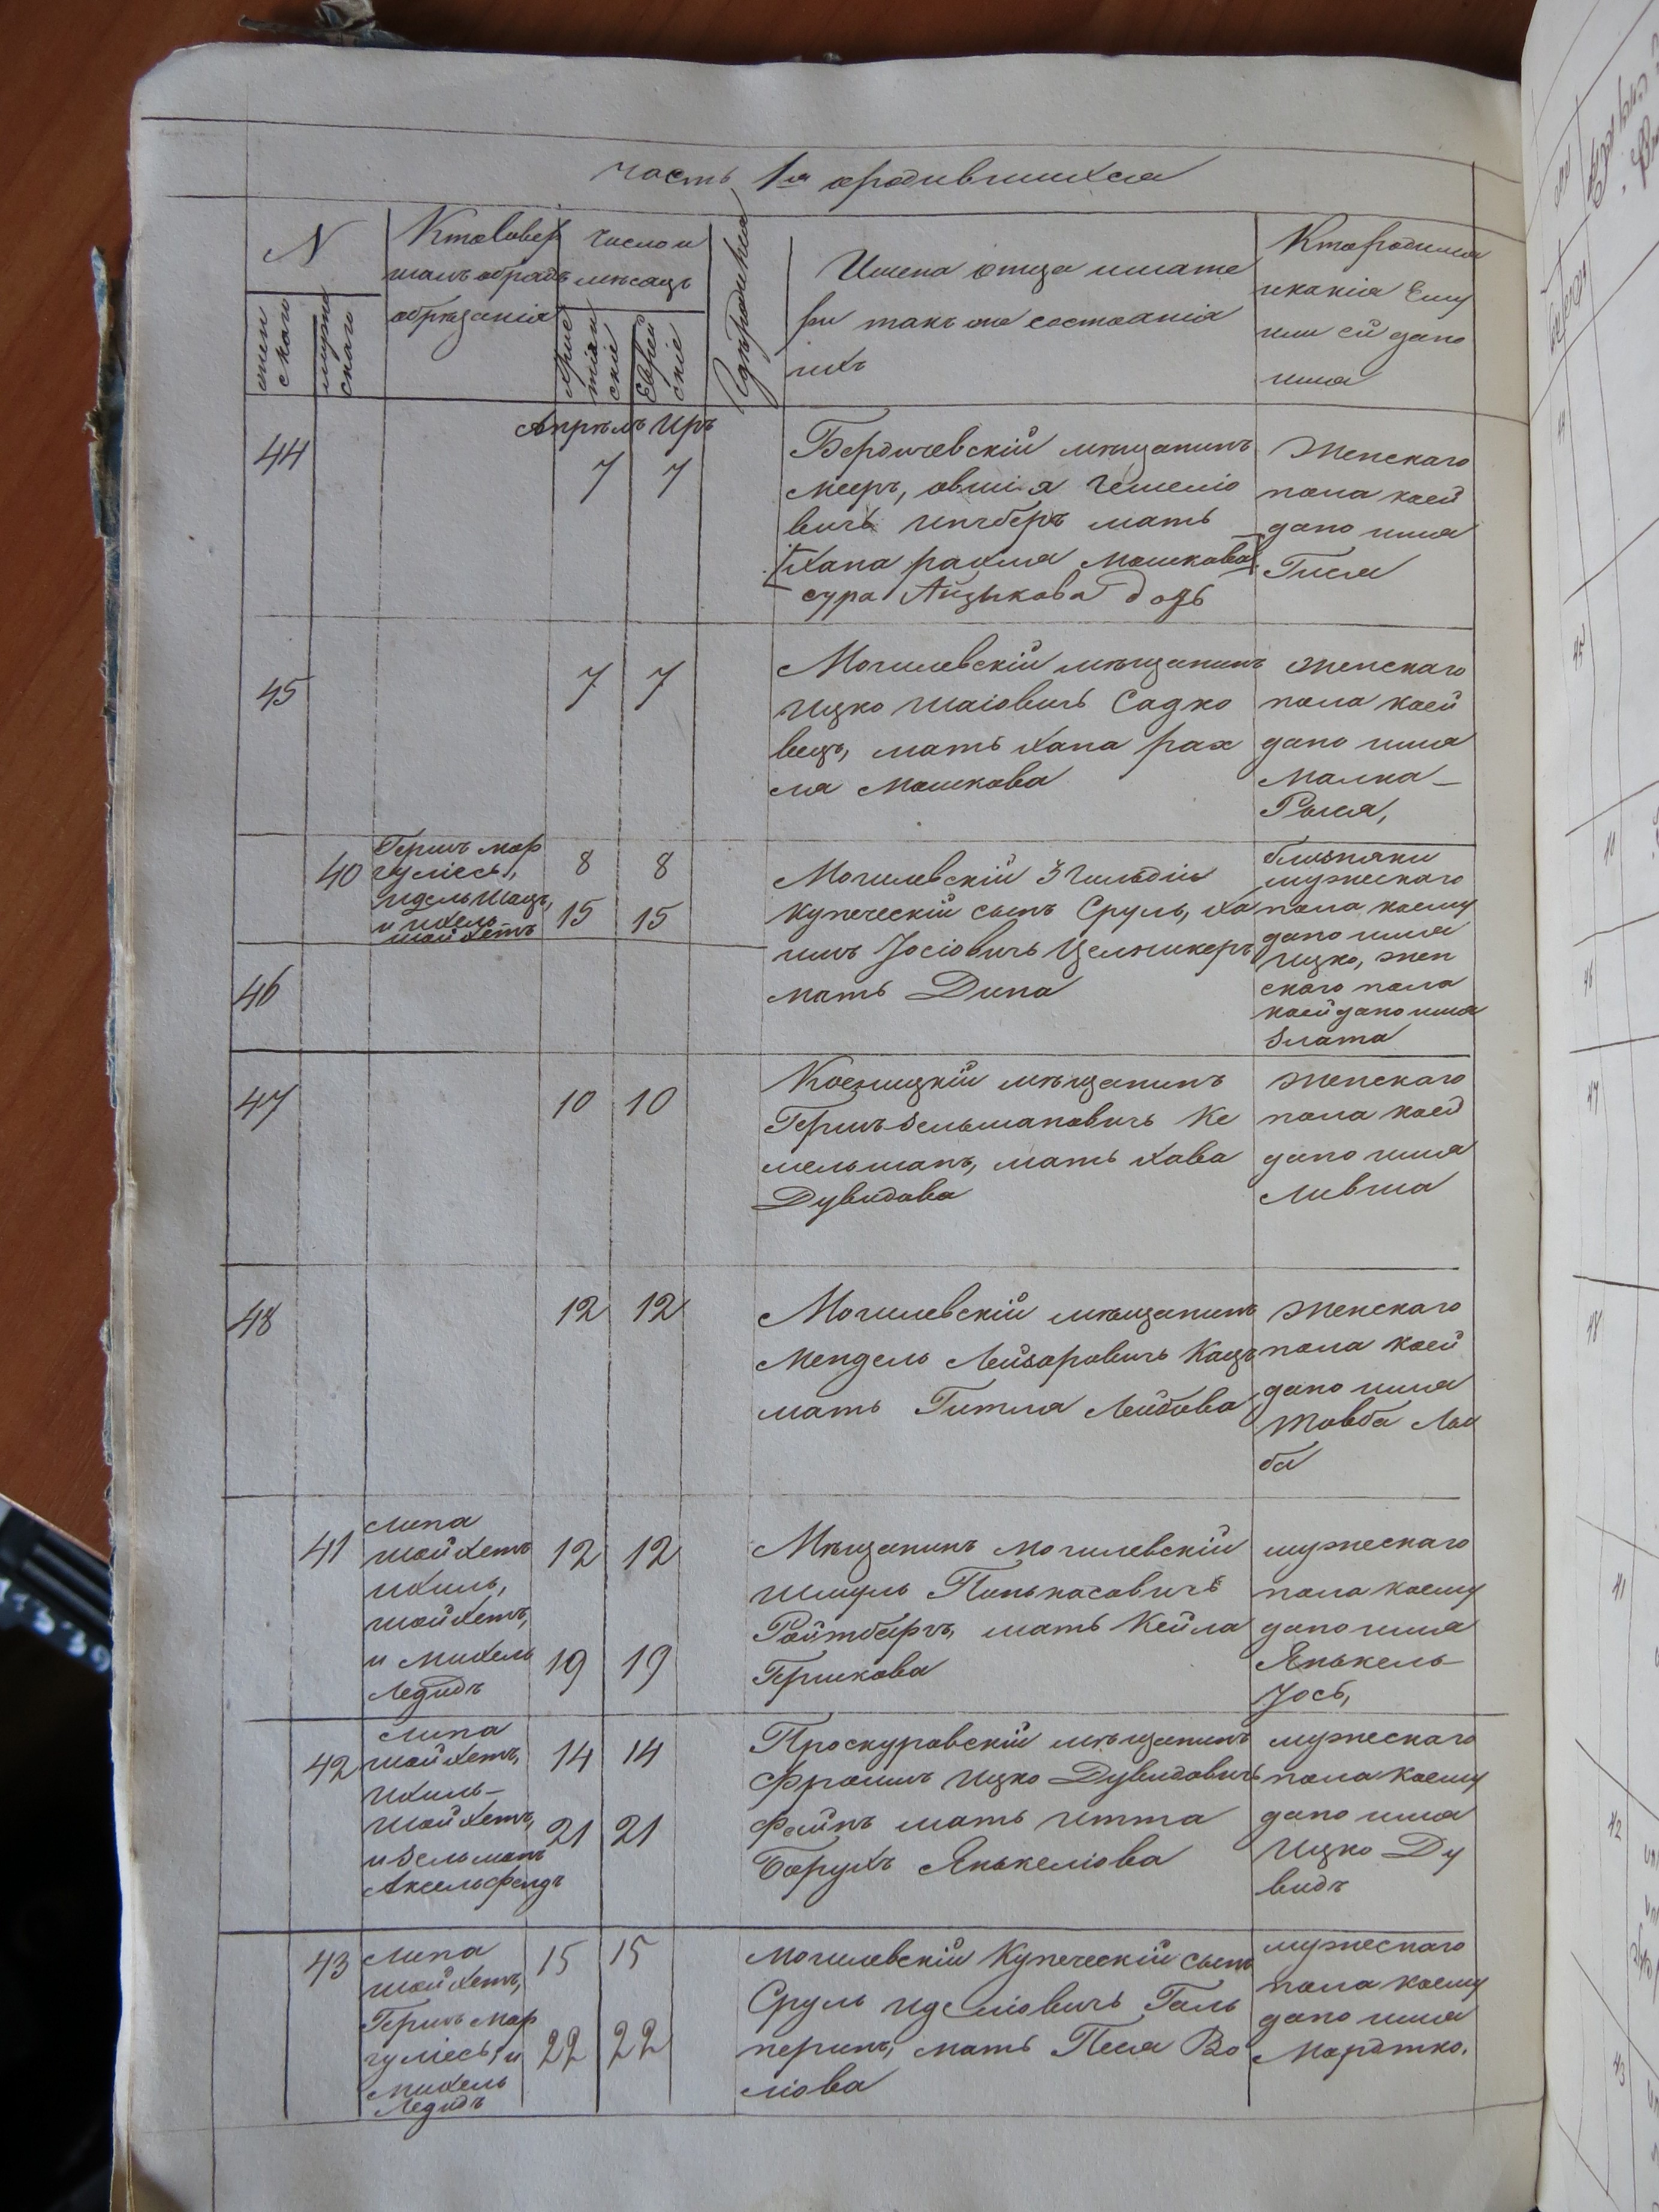 часть 1я ородившихся
N
женскаго
мужескаго
Кто Совер
шалъ обрядъ
обрѣзанія
число и
мѣсяцъ
Христіанскіе
Еврейскіе
Гдѣ родился
Имена отца и мате
ри такъ же состоянія
ихъ
Кто родился
и какія Ему
или ей дано
имя
Апрѣль Иръ
44
7 7
Бердичевскій мѣщанинъ
Мееръ, овшія
вичъ мать
Хана рахля Мошкова
сура Айзыкова дочь
Женскаго
пола коей
дано имя
Гися
45
7 7
Могилевскій мѣщанинъ
Ицко Шаіовичъ Садко
вецъ, мать Хана рах
ля Мошкова
Женскаго
пола коей
дано имя
Малка-
Рыся,
40
Гершъ Мор
гуліесъ,
Идель Шацъ,
и Ихель
Шойхетъ
8 8
15 15
46
Могилевскій 3 Гильдіи
Купеческій сынъ Сруль, Ха
имъ Іосіовичъ Целникеръ
мать Дина
близняки
мужескаго
пола коему
дано имя
Ицко, жен
скаго пола
коей дано имя
Злата
47
10 10
мѣщанинъ
Гершъ-Зельмановичъ Ке
мельманъ, мать Хава
Дувидова
Женскаго
пола коей
дано имя
Ливша
48
12 12
Могилевскій мѣщанинъ
Мендель Лейзоровичъ Кацъ
мать Гитля Лейбова
Женскаго
пола коей
дано имя
Товба Лая
ба
41
Липа
Шойхетъ
Ихиль,
Шойхетъ,
и Михель
Ледидъ
12 12
19 19
Мѣщанинъ могилевскій
Шмуль Пинькасовичъ
Ройтбаргъ, мать Кейла
Гершкова
мужескаго
пола коему
дано имя
Янькель-
Іось,
42
Липа
Шойхетъ,
Ихиль-
Шойхетъ,
и Зельманъ
Аксельфелдъ
14 14
21 21
Проскуровскій мѣщанинъ
Фроимъ Ицко Дувидовичъ
Файнъ мать Итта
Борухъ Янькеліова
мужескаго
пола коему
дано имя
Ицко Ду
видъ
43
Липа
Шойхетъ,
Гершъ Мор
гуліесъ, и
Михель
Ледидъ
15 15
22 22
Могилевскій Купеческій сынъ
Сруль Иделіовичъ Галь
перинъ, мать Песя Во
ліова
мужескаго
пола коему
дано имя
Мордтко.